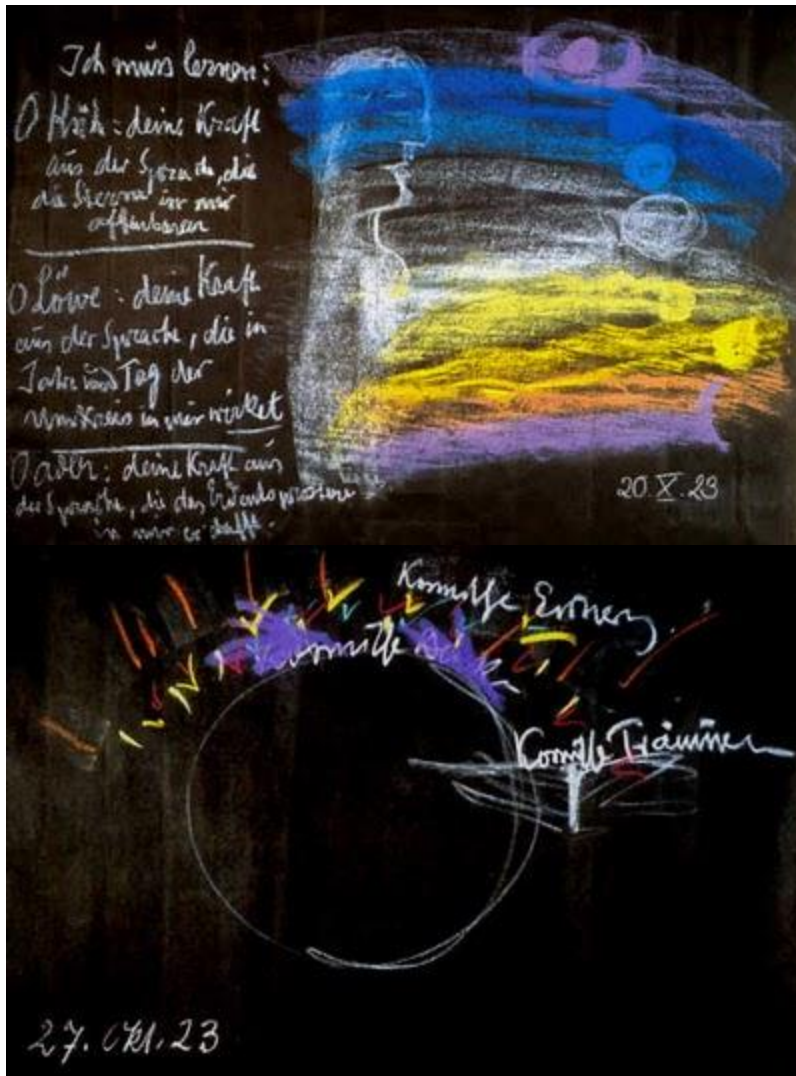 Ich muss lernen:
O Kuh: deine Kraft
aus der Sprache, die
die Sterne in mir
offenbaren
O Löwe: deine Kraft
aus der Sprache, die in
Jahr und Tag der
Umkreis in mir wirket
O adler: deine Kraft aus
der Sprache, die das
in mir
20.X.23
Kosmische
Kosmische
Kosmische Träumen
27. Okt. 23